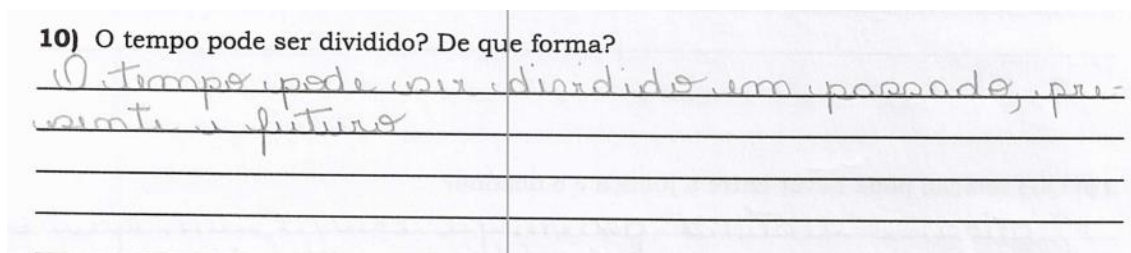 10) O tempo pode ser dividido? De que forma?
O tempo pode ser dividido em passado, pre-
sente e futuro